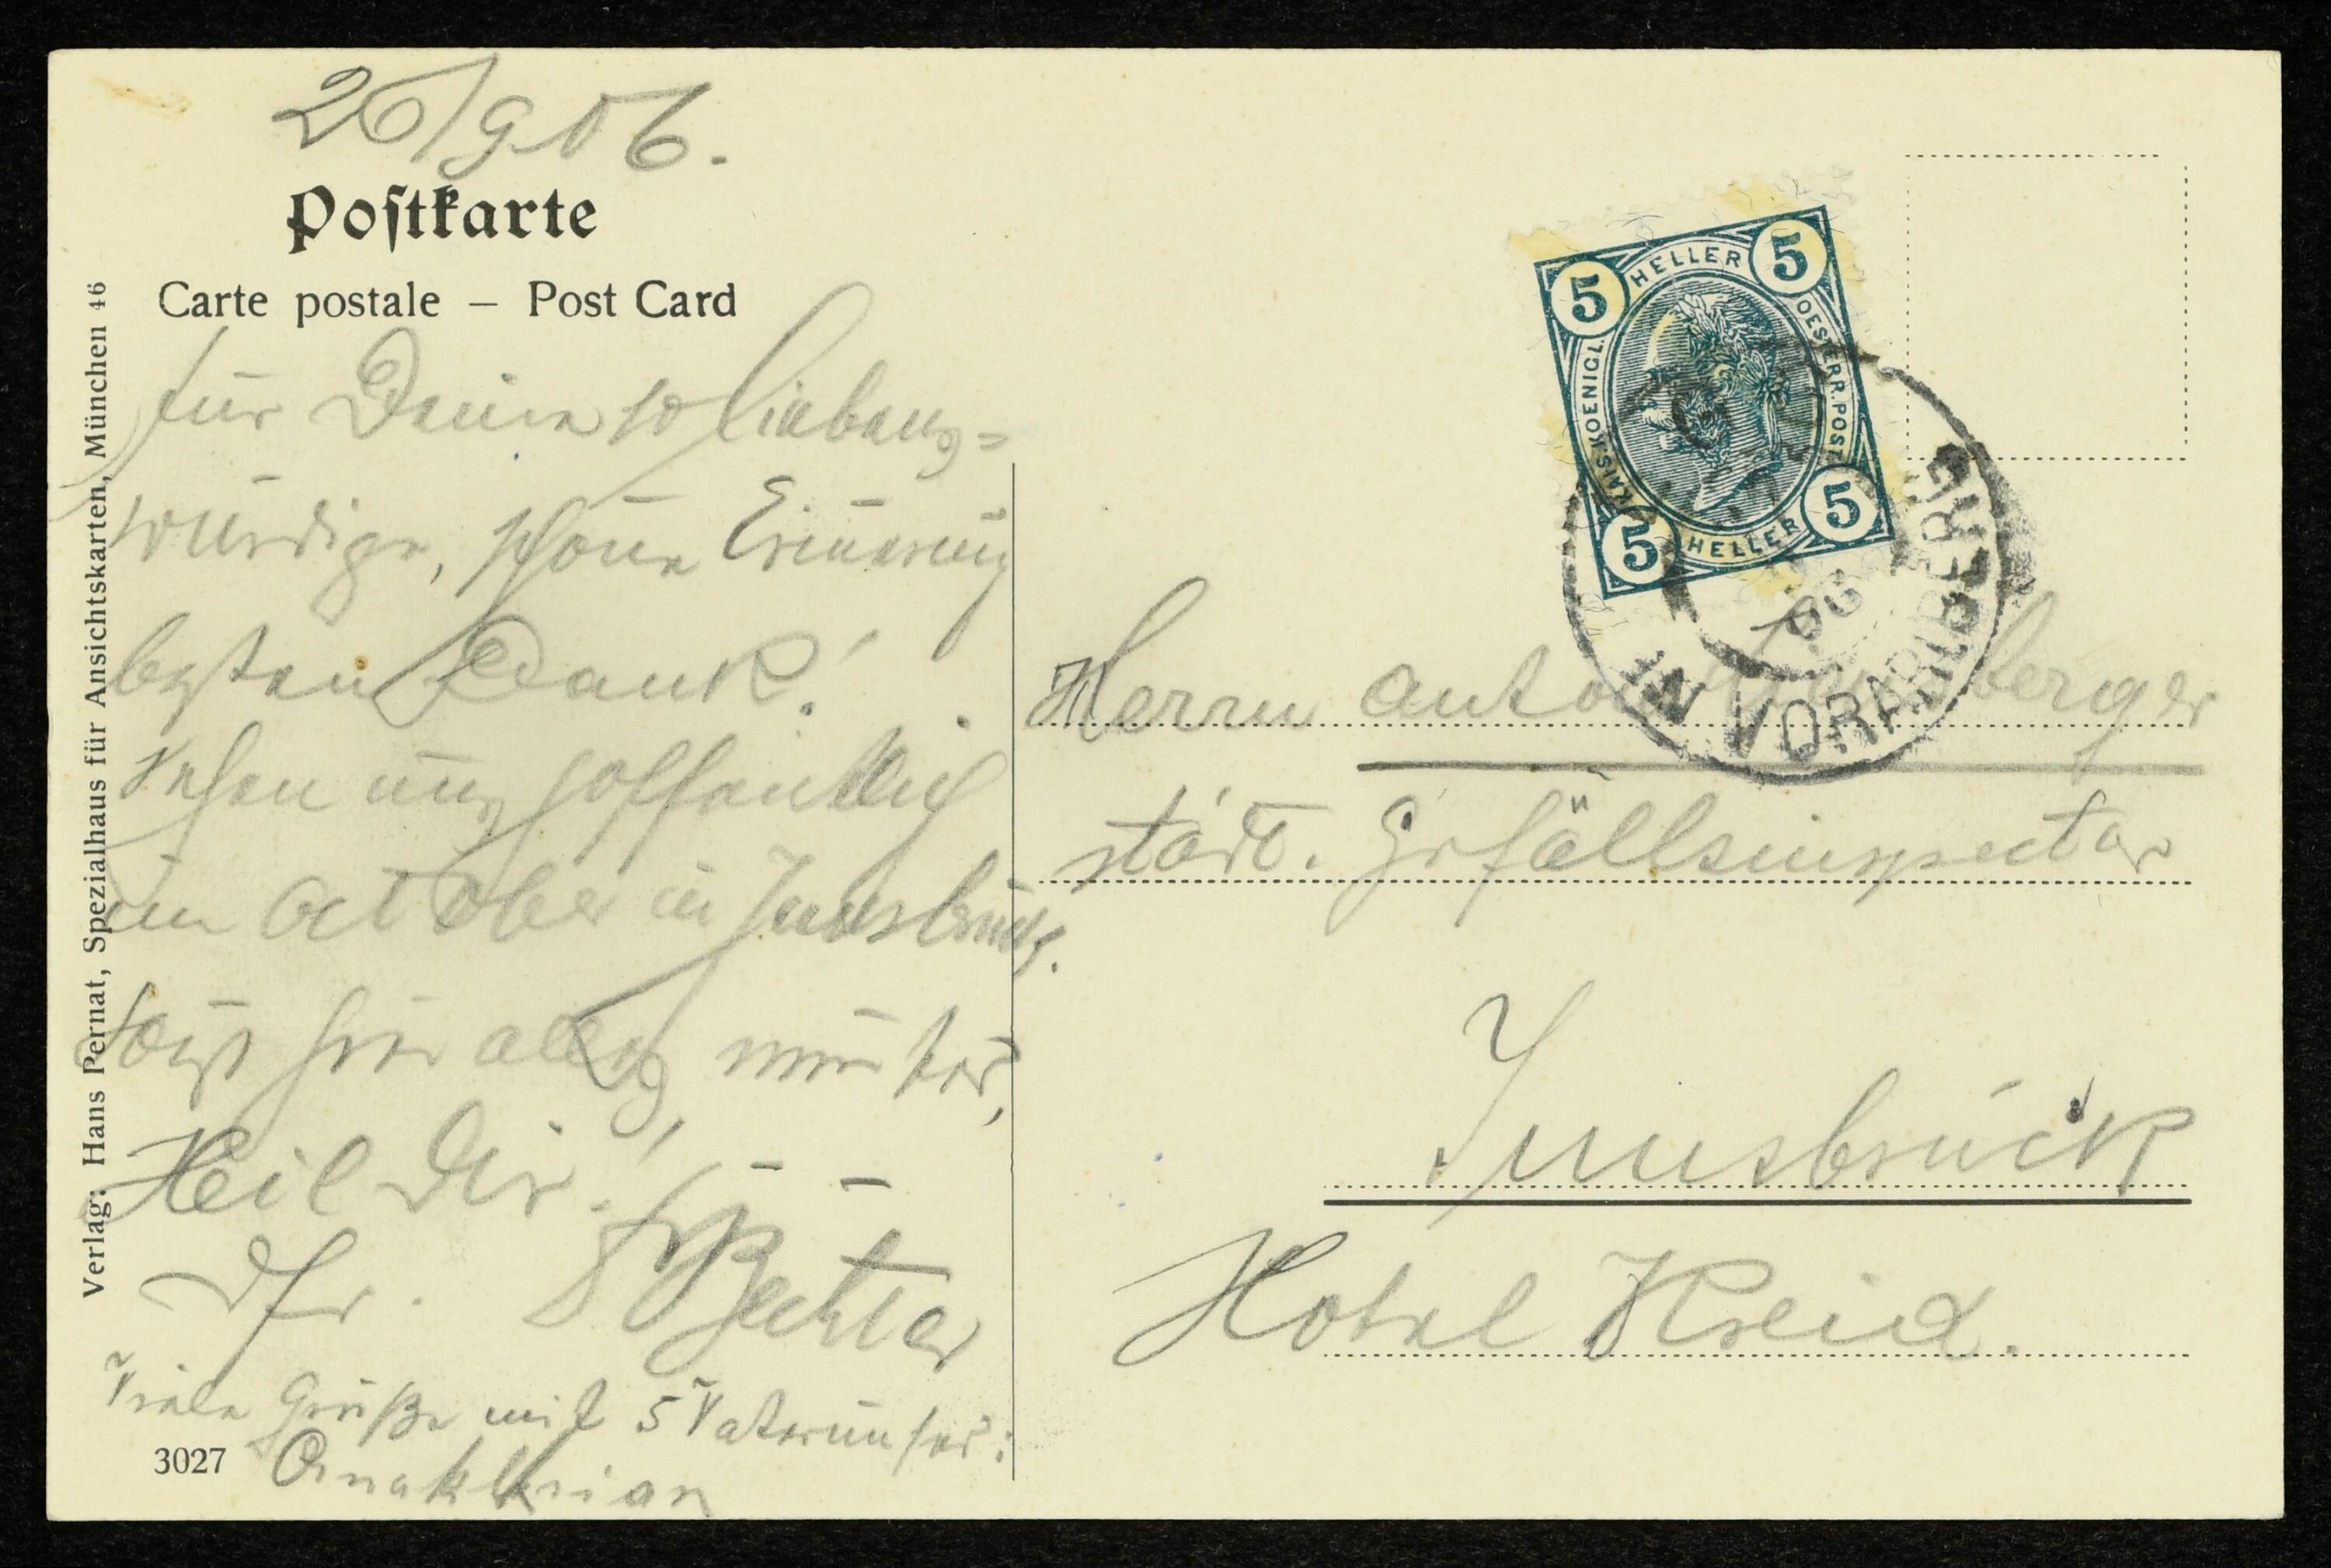 26/9 06.
Postkarte
Carte postale – Post Card
Für Deine so liebens=
würdige, schöne Erinerung
besten Dank!
Sehen uns hoffentlich
im October in Innsbruck.
Sonst hier alles munter,
Heil Dir!
Dfr. Bechter
Viele Grüße mit 5 Vaterunser:
3027
Verlag: Hans Pernat, Spezialhaus für Ansichtskarten, München 46
5 HELLER 5
KAIS. KOENIGL. OESTERR. POST
5 HELLER 5
IN VORARLBERG
06
Herrn Anton berger
städt. Gefällsinspector
Innsbruck
Hotel Kreid.